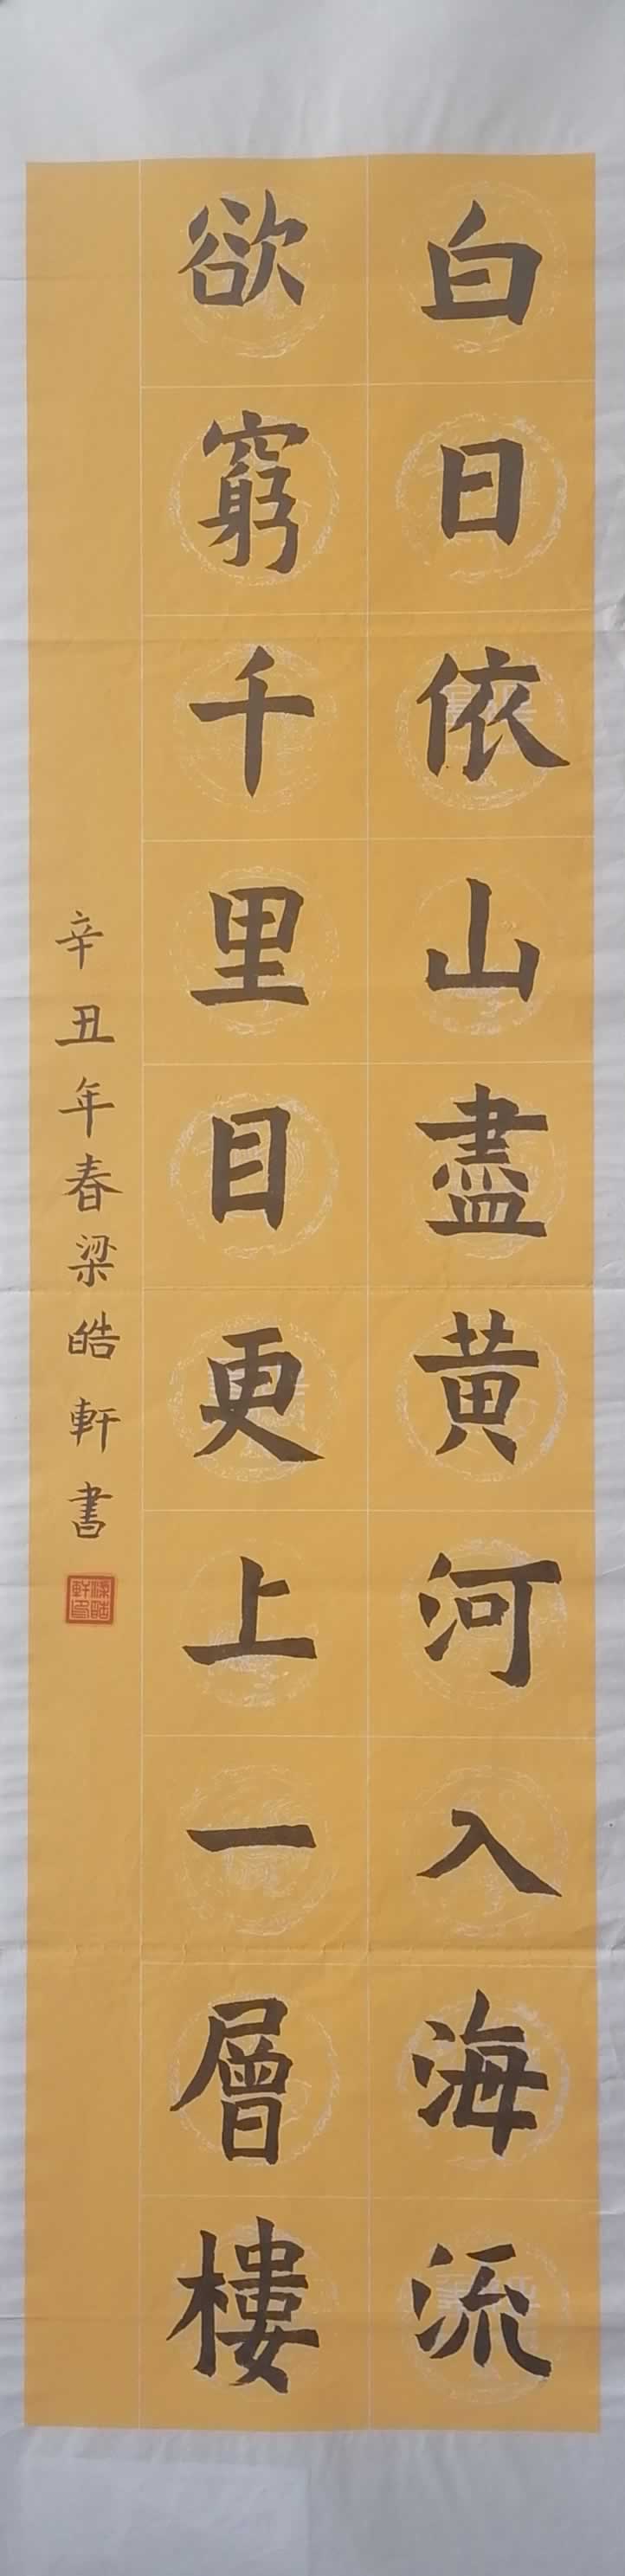 白日依山盡黄河入海流
欲窮千里目更上一層樓
辛丑年春梁皓軒書
梁皓軒印